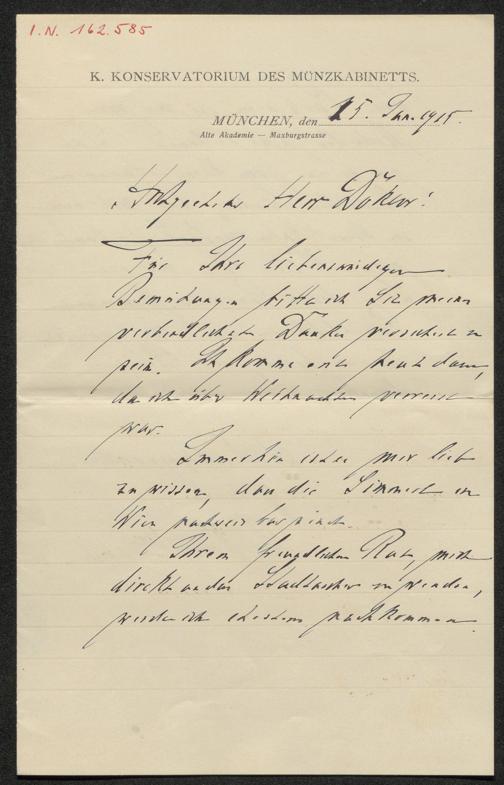 I.N. 162.585
K. KONSERVATORIUM DES MÜNZKABINETTS.
MÜNCHEN, den 15. Jan. 1915.
Alte Akademie — Maxburgstrasse
Herr Doktor!
Für Ihre liebenswürdigen
Bemühungen bitte ich Sie meines
verbindlichsten Dankes versichert zu
sein. Ich komme erst heute dazu,
da ich über Weihnachten verreist
war.
Immerhin ist es mir lieb
zu wissen, dass die in
Wien nachweisbar sind.
Ihrem freundlichen Rat, mich
direkt an das Stadtarchiv zu wenden,
werde ich nachkommen